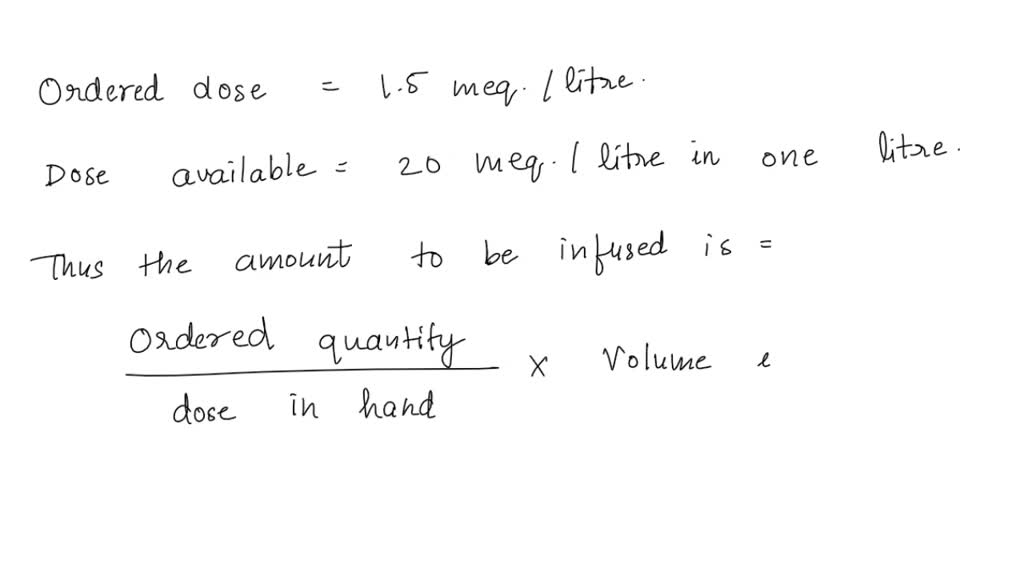 Ordered dose = 1.5 meq. / litre.
Dose available = 20 meq. / litre in one litre.
Thus the amount to be infused is =
Ordered quantity
dose in hand
x Volume e